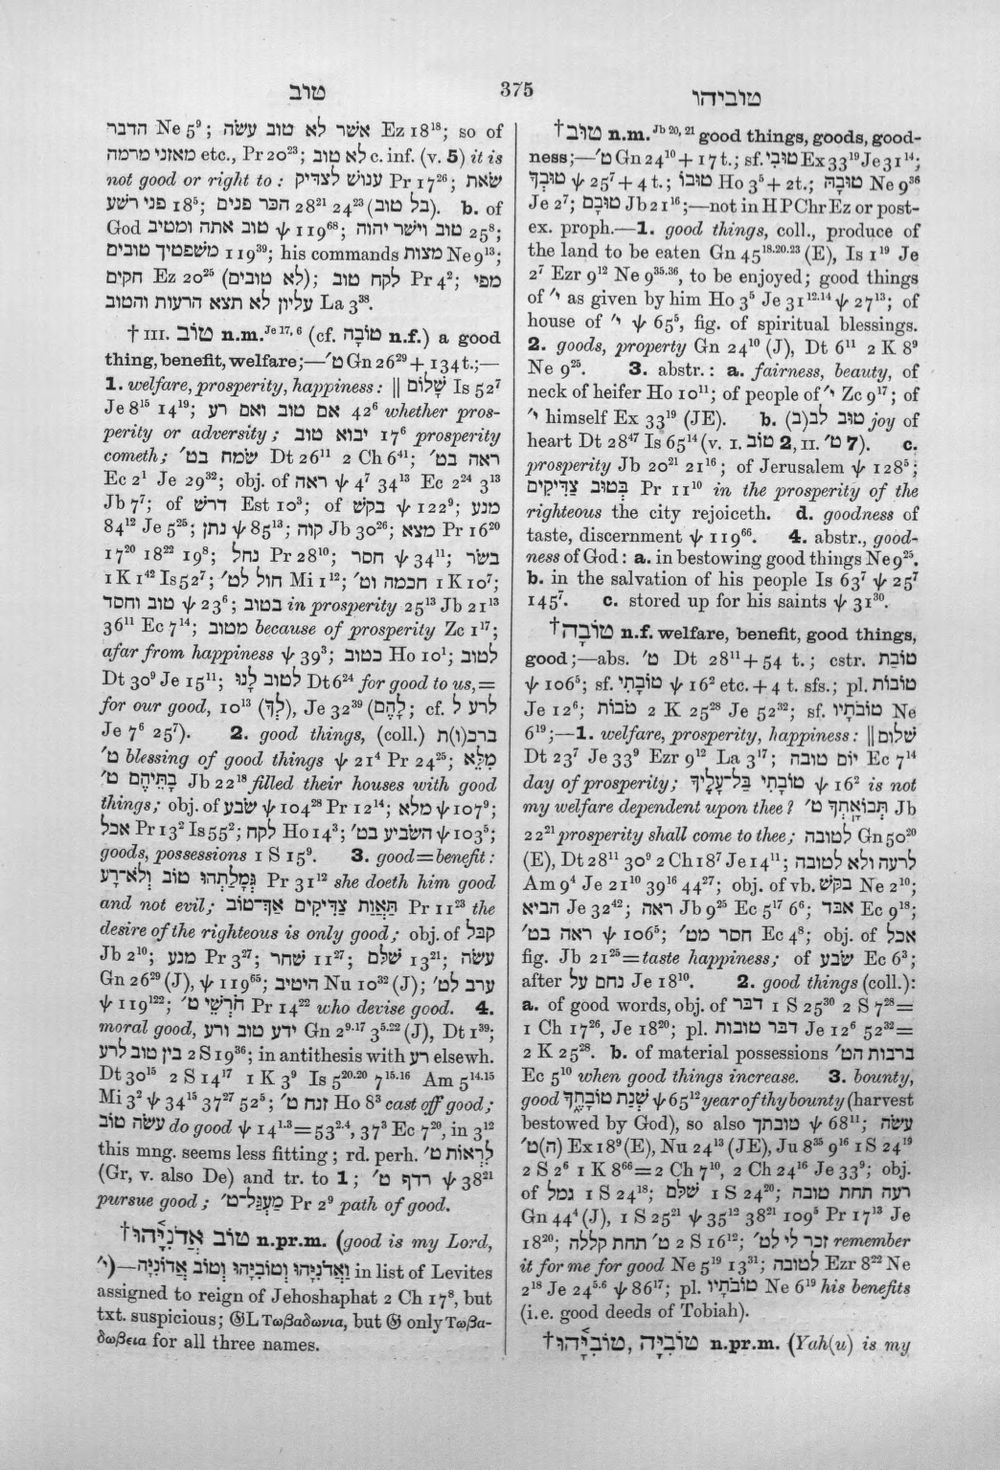 טוב
375
טוביהו
הדבר Ne 5⁹; אשר לא טוב עשׂה Ez 18¹⁸; so of
מאזני מרמה etc., Pr 20²³; לא טוב c. inf. (v. 5) it is
not good or right to: ענושׁ לצדיק Pr 17²⁶; שׂאת
פני רשׁע 18⁵; הכר פנים 28²¹ 24²³ (בל טוב). b. of
God טוב אתה ומטיב ψ 119⁶⁸; טוב וישׁר יהוה 25⁸;
משׁפטיך טובים 119³⁹; his commands מצות Ne 9¹³;
חקים Ez 20²⁵ (לא טובים); לקח טוב Pr 4²; מפי
עליון לא תצא הרעות והטוב La 3³⁸.
† III. טוֹב n.m. Je 17, 6 (cf. טוֹבָה n.f.) a good
thing, benefit, welfare;—ט׳ Gn 26²⁹ + 134 t.;—
1. welfare, prosperity, happiness: ‖ שָׁלוֹם Is 52⁷
Je 8¹⁵ 14¹⁹; אם טוב ואם רע 42⁶ whether pros-
perity or adversity; יבוא טוב 17⁶ prosperity
cometh; שׂמח בט׳ Dt 26¹¹ 2 Ch 6⁴¹; ראה בט׳
Ec 2¹ Je 29³²; obj. of ראה ψ 4⁷ 34¹³ Ec 2²⁴ 3¹³
Jb 7⁷; of דרשׁ Est 10³; of בקשׁ ψ 122⁹; מנע
84¹² Je 5²⁵; נתן ψ 85¹³; קוה Jb 30²⁶; מצא Pr 16²⁰
17²⁰ 18²² 19⁸; נחל Pr 28¹⁰; חסר ψ 34¹¹; בשׂר
1 K 1⁴² Is 52⁷; חול לט׳ Mi 1¹²; חכמה וט׳ 1 K 10⁷;
טוב וחסד ψ 23⁶; בטוב in prosperity 25¹³ Jb 21¹³
36¹¹ Ec 7¹⁴; מטוב because of prosperity Zc 1¹⁷;
afar from happiness ψ 39³; כטוב Ho 10¹; לטוב
Dt 30⁹ Je 15¹¹; לטוב לָנוּ Dt 6²⁴ for good to us, =
for our good, 10¹³ (לְךָ), Je 32³⁹ (לָהֶם; cf. לרע ל
Je 7⁶ 25⁷). 2. good things, (coll.) ברכ(ו)ת
ט׳ blessing of good things ψ 21⁴ Pr 24²⁵; מִלֵּא
בָתֵּיהֶם ט׳ Jb 22¹⁸ filled their houses with good
things; obj. of שׂבע ψ 104²⁸ Pr 12¹⁴; מלא ψ 107⁹;
אכל Pr 13² Is 55²; לקח Ho 14³; השׂביע בט׳ ψ 103⁵;
goods, possessions 1 S 15⁹. 3. good = benefit:
גְּמָלַתְהוּ טוֹב וְלֹא־רָע Pr 31¹² she doeth him good
and not evil; תַּאֲוַת צַדִּיקִים אַךְ־טוֹב Pr 11²³ the
desire of the righteous is only good; obj. of קבּל
Jb 2¹⁰; מנע Pr 3²⁷; שׁחר 11²⁷; שׁלם 13²¹; עשׂה
Gn 26²⁹ (J), ψ 119⁶⁵; היטיב Nu 10³² (J); ערב לט׳
ψ 119¹²²; חֹרְשֵׁי ט׳ Pr 14²² who devise good. 4.
moral good, ידע טוב ורע Gn 2⁹·¹⁷ 3⁵·²² (J), Dt 1³⁹;
בין טוב לרע 2 S 19³⁶; in antithesis with רע elsewh.
Dt 30¹⁵ 2 S 14¹⁷ 1 K 3⁹ Is 5²⁰·²⁰ 7¹⁵·¹⁶ Am 5¹⁴·¹⁵
Mi 3² ψ 34¹⁵ 37²⁷ 52⁵; זנח ט׳ Ho 8³ cast off good;
עשׂה טוב do good ψ 14¹·³ = 53²·⁴, 37³ Ec 7²⁰, in 3¹²
this mng. seems less fitting; rd. perh. לִרְאוֹת ט׳
(Gr, v. also De) and tr. to 1; רדף ט׳ ψ 38²¹
pursue good; מַעְגַּל־ט׳ Pr 2⁹ path of good.
† טוֹב אֲדֹנִיָּ֫הוּ n.pr.m. (good is my Lord,
י׳)—וַאֲדֹנִיָּהוּ וְטוֹבִיָּהוּ וְטוֹב אֲדוֹנִיָּה in list of Levites
assigned to reign of Jehoshaphat 2 Ch 17⁸, but
txt. suspicious; 𝔊L Τωβαδωνια, but 𝔊 only Τωβα-
δωβεια for all three names.
† טוּב n.m. Jb 20, 21 good things, goods, good-
ness;—ט׳ Gn 24¹⁰ + 17 t.; sf. טוּבִי Ex 33¹⁹ Je 31¹⁴;
טוּבְךָ ψ 25⁷ + 4 t.; טוּבוֹ Ho 3⁵ + 2 t.; טוּבָהּ Ne 9³⁶
Je 2⁷; טוּבָם Jb 21¹⁶;—not in H P Chr Ez or post-
ex. proph.—1. good things, coll., produce of
the land to be eaten Gn 45¹⁸·²⁰·²³ (E), Is 1¹⁹ Je
2⁷ Ezr 9¹² Ne 9³⁵·³⁶, to be enjoyed; good things
of י׳ as given by him Ho 3⁵ Je 31¹²·¹⁴ ψ 27¹³; of
house of י׳ ψ 65⁵, fig. of spiritual blessings.
2. goods, property Gn 24¹⁰ (J), Dt 6¹¹ 2 K 8⁹
Ne 9²⁵. 3. abstr.: a. fairness, beauty, of
neck of heifer Ho 10¹¹; of people of י׳ Zc 9¹⁷; of
י׳ himself Ex 33¹⁹ (JE). b. טוּב לב(ב) joy of
heart Dt 28⁴⁷ Is 65¹⁴ (v. I. טוֹב 2, II. ט׳ 7). c.
prosperity Jb 20²¹ 21¹⁶; of Jerusalem ψ 128⁵;
בְּטוּב צַדִּיקִים Pr 11¹⁰ in the prosperity of the
righteous the city rejoiceth. d. goodness of
taste, discernment ψ 119⁶⁶. 4. abstr., good-
ness of God: a. in bestowing good things Ne 9²⁵.
b. in the salvation of his people Is 63⁷ ψ 25⁷
145⁷. c. stored up for his saints ψ 31²⁰.
† טוֹבָה n.f. welfare, benefit, good things,
good;—abs. ט׳ Dt 28¹¹ + 54 t.; cstr. טוֹבַת
ψ 106⁵; sf. טוֹבָתִי ψ 16² etc. + 4 t. sfs.; pl. טוֹבוֹת
Je 12⁶; טֹבוֹת 2 K 25²⁸ Je 52³²; sf. טוֹבֹתָיו Ne
6¹⁹;—1. welfare, prosperity, happiness: ‖ שׁלום
Dt 23⁷ Je 33⁹ Ezr 9¹² La 3¹⁷; יום טובה Ec 7¹⁴
day of prosperity; טוֹבָתִי בַּל־עָלֶיךָ ψ 16² is not
my welfare dependent upon thee? תְּבוֹאָתְךָ ט׳ Jb
22²¹ prosperity shall come to thee; לטובה Gn 50²⁰
(E), Dt 28¹¹ 30⁹ 2 Ch 18⁷ Je 14¹¹; לרעה ולא לטובה
Am 9⁴ Je 21¹⁰ 39¹⁶ 44²⁷; obj. of vb. בקשׁ Ne 2¹⁰;
הביא Je 32⁴²; ראה Jb 9²⁵ Ec 5¹⁷ 6⁶; אבד Ec 9¹⁸;
ראה בט׳ ψ 106⁵; חסר מט׳ Ec 4⁸; obj. of אכל
fig. Jb 21²⁵ = taste happiness; of שׂבע Ec 6³;
after נחם על Je 18¹⁰. 2. good things (coll.):
a. of good words, obj. of דבר 1 S 25³⁰ 2 S 7²⁸ =
1 Ch 17²⁶, Je 18²⁰; pl. דבר טובות Je 12⁶ 52³² =
2 K 25²⁸. b. of material possessions ברבות הט׳
Ec 5¹⁰ when good things increase. 3. bounty,
good שְׁנַת טוֹבָתֶךָ ψ 65¹² year of thy bounty (harvest
bestowed by God), so also טובתך ψ 68¹¹; עשׂה
(ה)ט׳ Ex 18⁹ (E), Nu 24¹³ (JE), Ju 8³⁵ 9¹⁶ 1 S 24¹⁹
2 S 2⁶ 1 K 8⁶⁶ = 2 Ch 7¹⁰, 2 Ch 24¹⁶ Je 33⁹; obj.
of גמל 1 S 24¹⁸; שׁלם 1 S 24²⁰; רעה תחת טובה
Gn 44⁴ (J), 1 S 25²¹ ψ 35¹² 38²¹ 109⁵ Pr 17¹³ Je
18²⁰; ט׳ תחת קללה 2 S 16¹²; זכר לי לט׳ remember
it for me for good Ne 5¹⁹ 13³¹; לטובה Ezr 8²² Ne
2¹⁸ Je 24⁵·⁶ ψ 86¹⁷; pl. טוֹבֹתָיו Ne 6¹⁹ his benefits
(i.e. good deeds of Tobiah).
† טוֹבִיָּה, טוֹבִיָּ֫הוּ n.pr.m. (Yah(u) is my